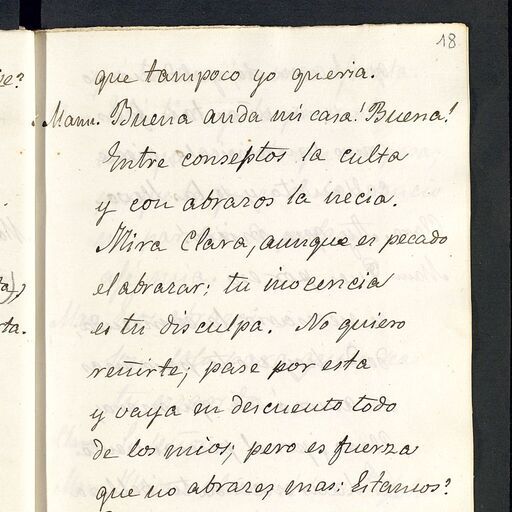 18
que tampoco yo queria.
Manu. Buena anda mi casa! Buena!
Entre conseptos la culta
y con abrazos la necia.
Mira Clara, aunque es pecado
el abrazar; tu inocencia
es tu disculpa. No quiero
reñirte; pase por esta
y vaya en descuento todo
de los mios; pero es fuerza
que no abrazes mas: Estamos?